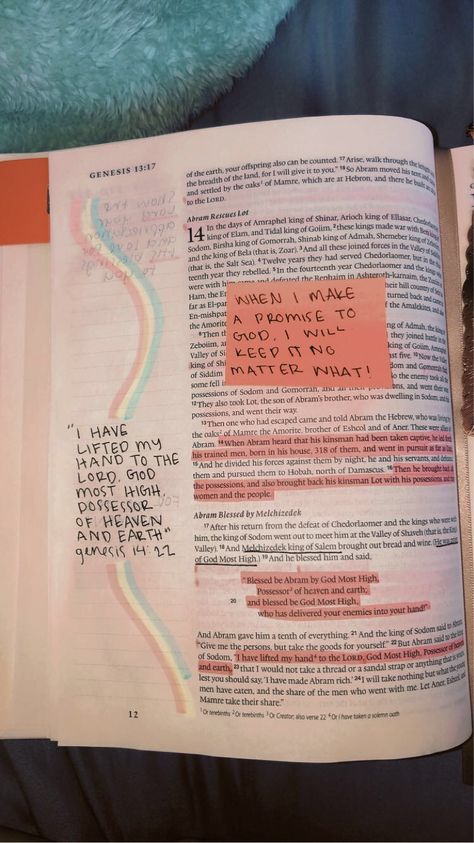 GENESIS 13:17
of the earth, your offspring also can be counted. 17 Arise, walk through the length and
the breadth of the land, for I will give it to you." 18 So Abram moved his tent and
and settled by the oaks¹ of Mamre, which are at Hebron, and there he built an
to the LORD.
Abram Rescues Lot
14 In the days of Amraphel king of Shinar, Arioch king of Ellasar,
king of Elam, and Tidal king of Goiim, 2 these kings made war with
Sodom, Birsha king of Gomorrah, Shinab king of Admah, Shemeber king of
and the king of Bela (that is, Zoar). 3 And all these joined forces in the Valley of
(that is, the Salt Sea). 4 Twelve years they had served Chedorlaomer, but in the
teenth year they rebelled. 5 In the fourteenth year Chedorlaomer and the kings
were with him came and defeated the Rephaim in Ashteroth-karnaim, the
Ham, the
their hill country of
far as El-
turned back and
En-mishpat
the Amalekites, and
the Amorites
8 Then
king of Admah, the king
Zeboiim,
they joined battle in the
Valley of
king of Goiim,
king of
against five. 10 Now the Valley
of Siddim
Sodom and Gomorrah
some fell
So the enemy took all the
possessions of Sodom and Gomorrah, and all their provisions, and went their way.
12 They also took Lot, the son of Abram's brother, who was dwelling in Sodom, and his
possessions, and went their way.
WHEN I MAKE
A PROMISE TO
GOD, I WILL
KEEP IT NO
MATTER WHAT!
13 Then one who had escaped came and told Abram the Hebrew, who was living by
the oaks² of Mamre the Amorite, brother of Eshcol and of Aner. These were allies of
Abram. 14 When Abram heard that his kinsman had been taken captive, he led forth
his trained men, born in his house, 318 of them, and went in pursuit as far as Dan.
15 And he divided his forces against them by night, he and his servants, and defeated
them and pursued them to Hobah, north of Damascus. 16 Then he brought back all
the possessions, and also brought back his kinsman Lot with his possessions, and the
women and the people.
"I HAVE
LIFTED MY
HAND TO THE
LORD, GOD
MOST HIGH,
POSSESSOR
OF HEAVEN
AND EARTH"
genesis 14:22
Abram Blessed by Melchizedek
17 After his return from the defeat of Chedorlaomer and the kings who were with
him, the king of Sodom went out to meet him at the Valley of Shaveh (that is, the King's
Valley). 18 And Melchizedek king of Salem brought out bread and wine. (He was priest
of God Most High.) 19 And he blessed him and said,
"Blessed be Abram by God Most High,
Possessor³ of heaven and earth;
20 and blessed be God Most High,
who has delivered your enemies into your hand!"
And Abram gave him a tenth of everything. 21 And the king of Sodom said to Abram,
"Give me the persons, but take the goods for yourself." 22 But Abram said to the king
of Sodom, "I have lifted my hand⁴ to the LORD, God Most High, Possessor of heaven
and earth, 23 that I would not take a thread or a sandal strap or anything that is yours,
lest you should say, 'I have made Abram rich.' 24 I will take nothing but what the young
men have eaten, and the share of the men who went with me. Let Aner, Eshcol, and
Mamre take their share."
12
¹ Or terebinths ² Or terebinths ³ Or Creator; also verse 22 ⁴ Or I have taken a solemn oath